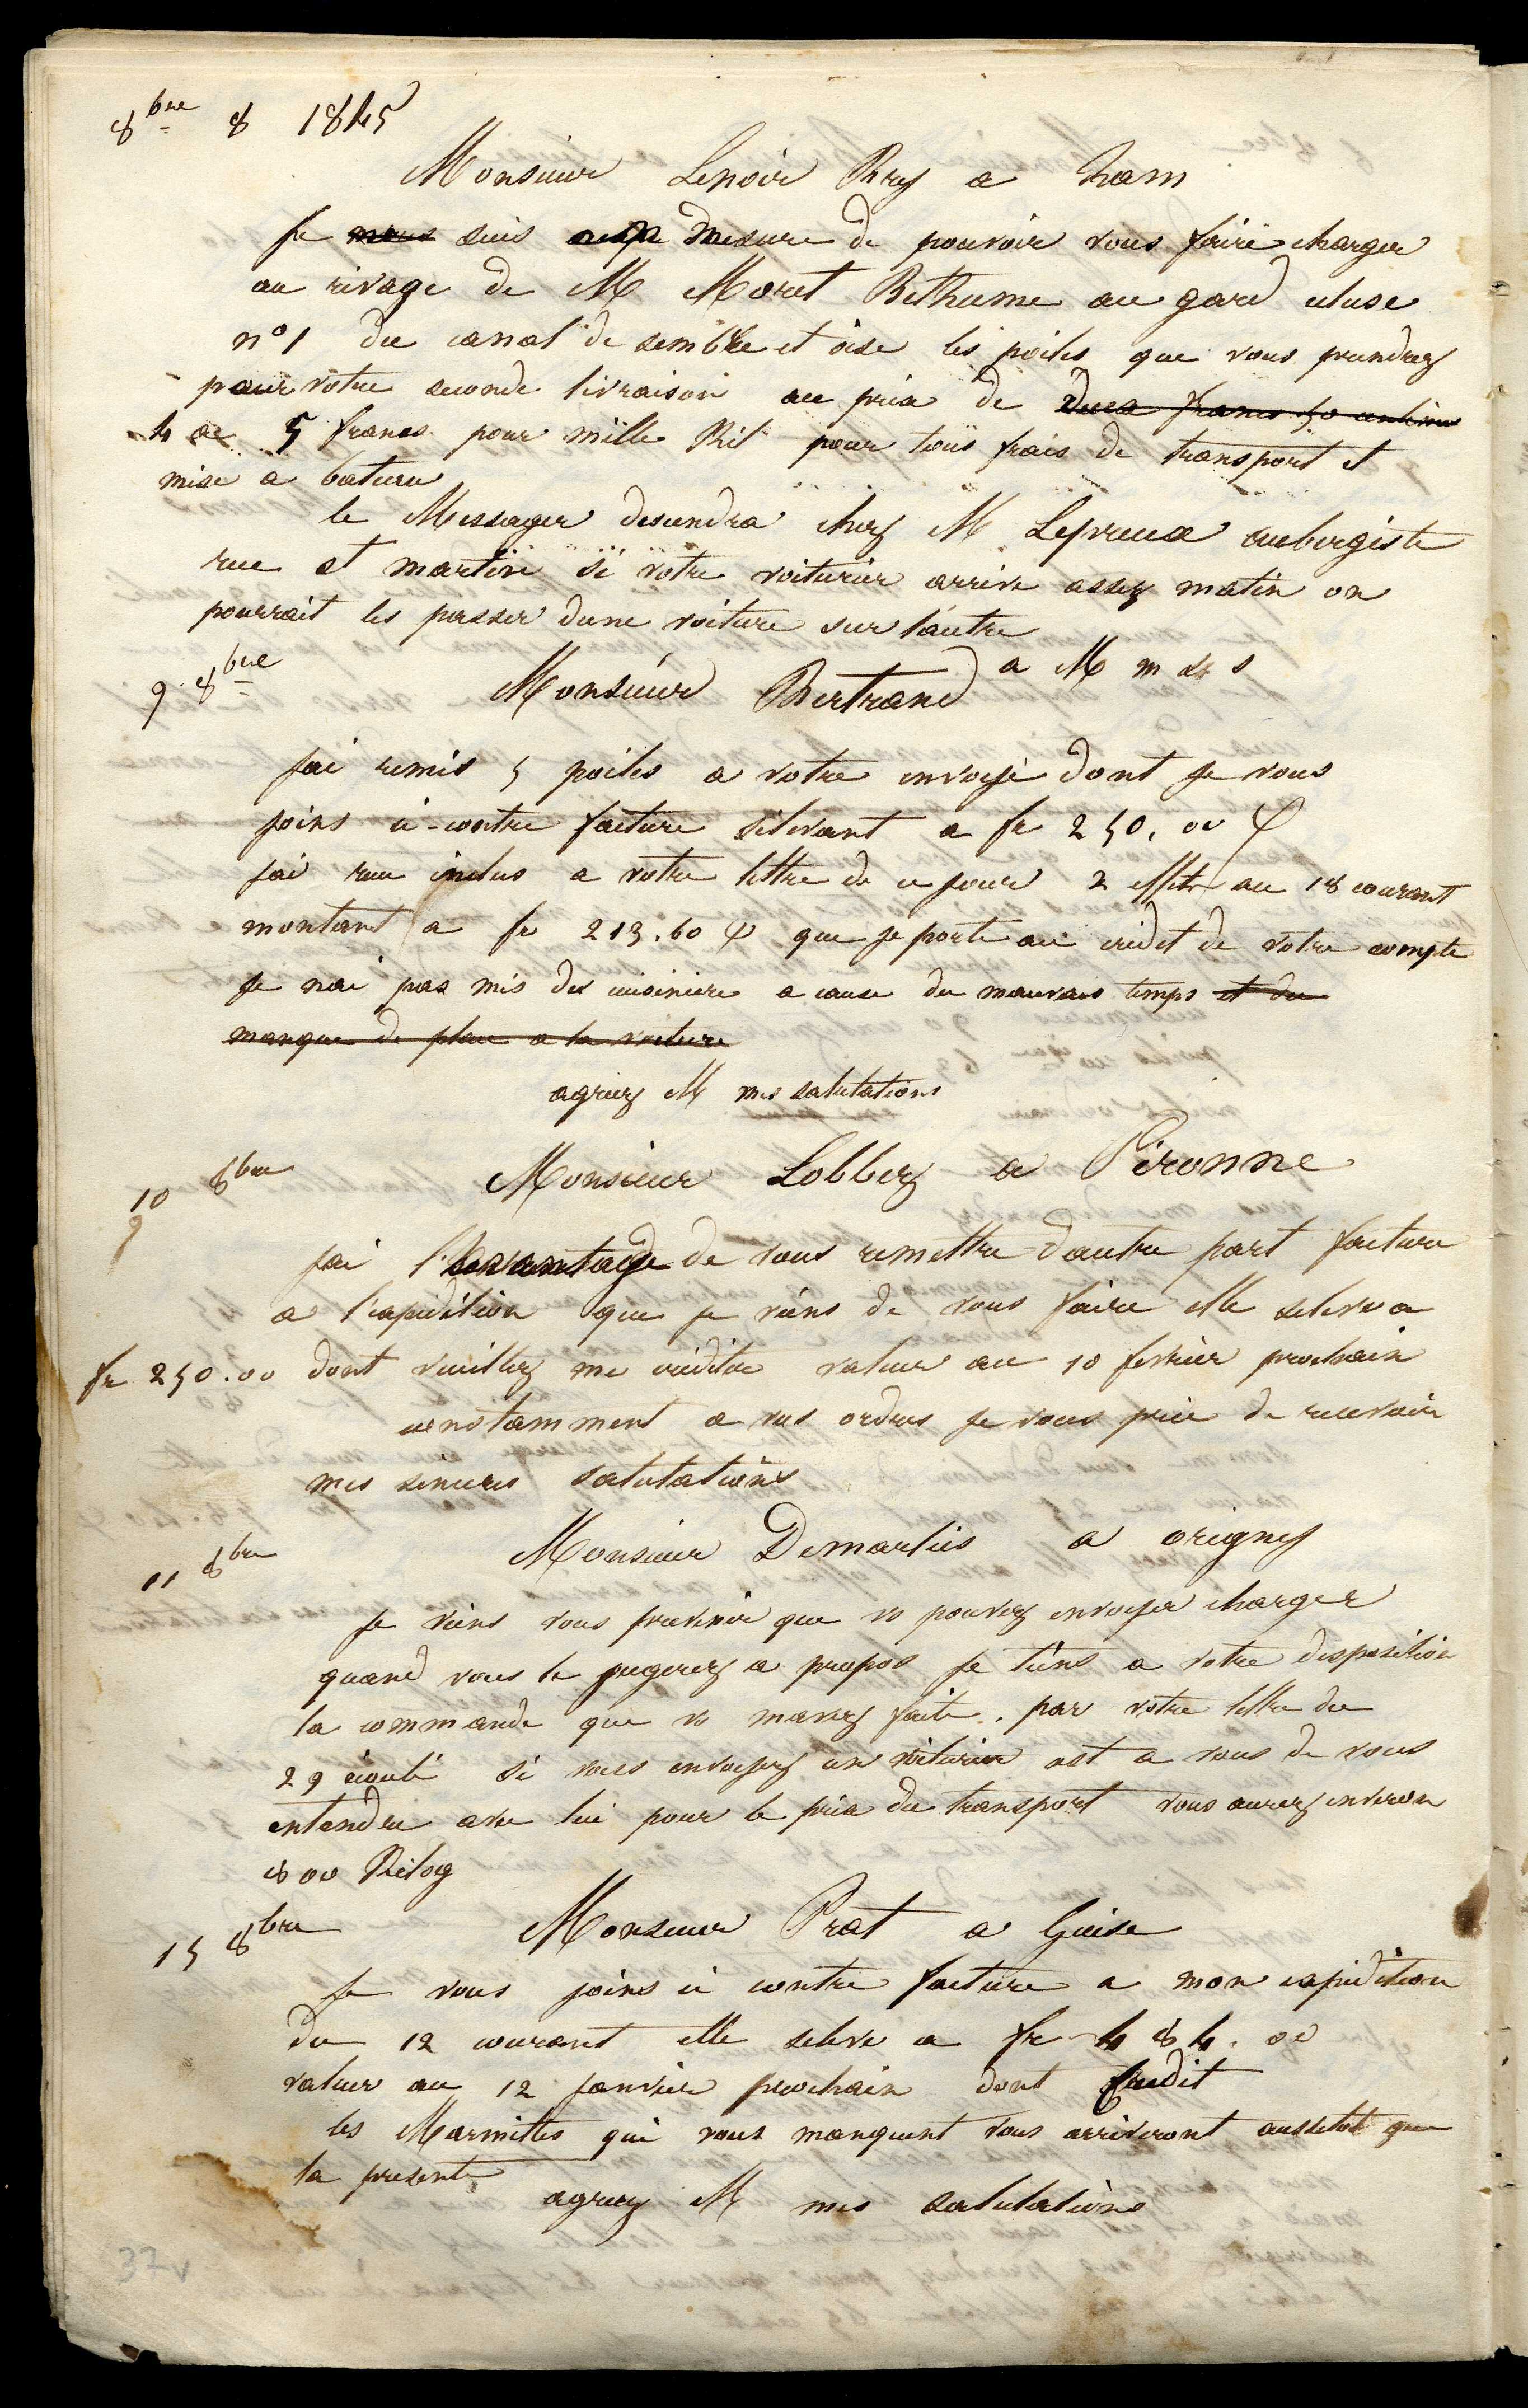 8bre 8 1845
Monsieur Lenoir Rey a ham
Je nous suis mesure de pouvoir vous faire charger
au rivage de M Moret Bethume au gard ecluse
n° 1 du canal de sembre et oise les poiles que vous prendrez
pour votre seconde livraison au prix de deux francs 50 centimes
4 a 5 francs pour mille Kil pour tous frais de transport et
mise a bateau
le Messager desendra chez M Lepreux aubergiste
rue st martin si votre voiturier arrive assez matin on
pourrait les passer dune voiture sur l'autre
a M m s s
9 8bre Monsieur Bertrand
jai remis 5 poiles a votre envoyé dont je vous
joins ci-contre facture sélevant a fr 250,00
jai reçu inclus a votre lettre de ce jour 2 effets au 18 courant
montant a fr 213.60 que je porte au crédit de votre compte
je nai pas mis des cuisiniere a cause du mauvais temps et du
manque de place a la voiture
agréez M mes salutations
10 8bre Monsieur Lobbez a Péronne
9
jai l'avantage de vous remettre dautre part facture
a l'expédition que je viens de vous faire elle seleve a
fr 250.00 dont veuillez me créditer valeur au 10 fevrier prochain
constamment a vos ordres je vous prie de recevoir
mes sinceres salutations
11 8bre Monsieur Demarlies a origny
je viens vous prevenir que vs pouvez envoyer charger
quand vous le jugerez a propos je tiens a votre disposition
la commande que vs mavez faite par votre lettre du
29 août si vous envoyez un voiturier est a vous de vous
entendre avec lui pour le prix du transport vous aurez environ
800 Kilog
15 8bre Monsieur Prat a Guise
Je vous joins ci contre facture a mon expédition
du 12 courant elle seleve a fr 484.00
valeur au 12 janvier prochain dont Crédit
les Marmittes qui vous manquent vous arriveront aussetot que
la presente
agréez M mes salutations
37v